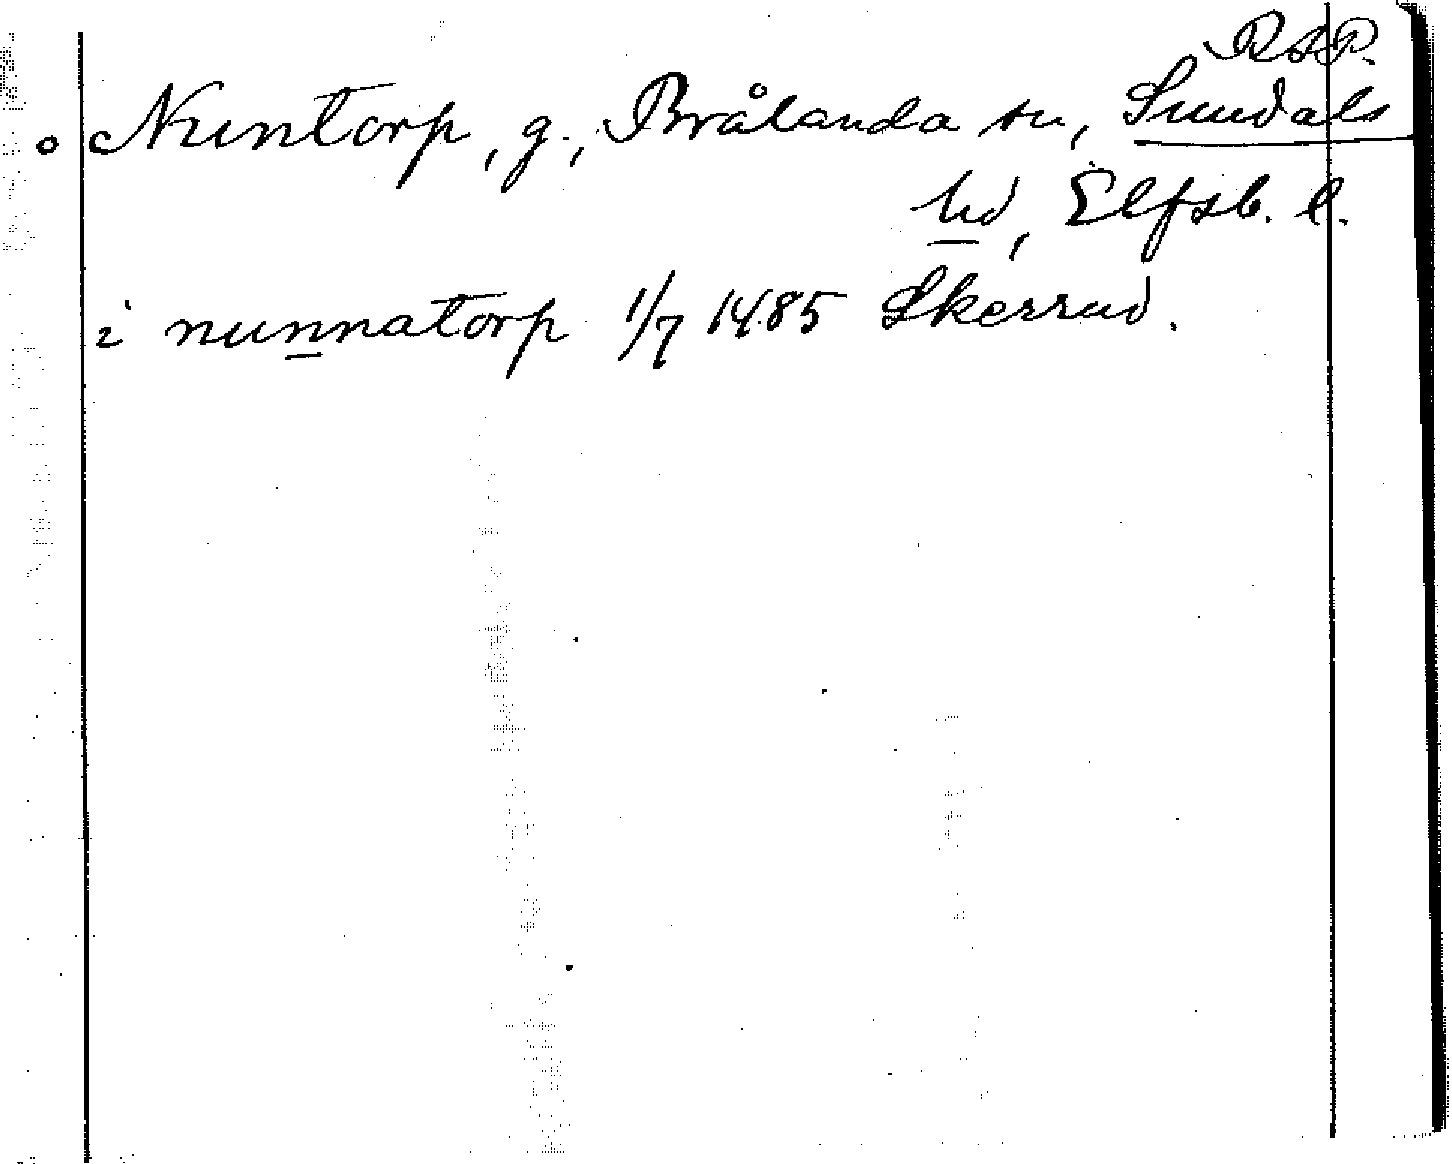 RAP.
Nuntorp, g., Brålanda sn, Sundals
hd, Elfsb. l.
i nunnatorp 1/7 1485 Skerrud.